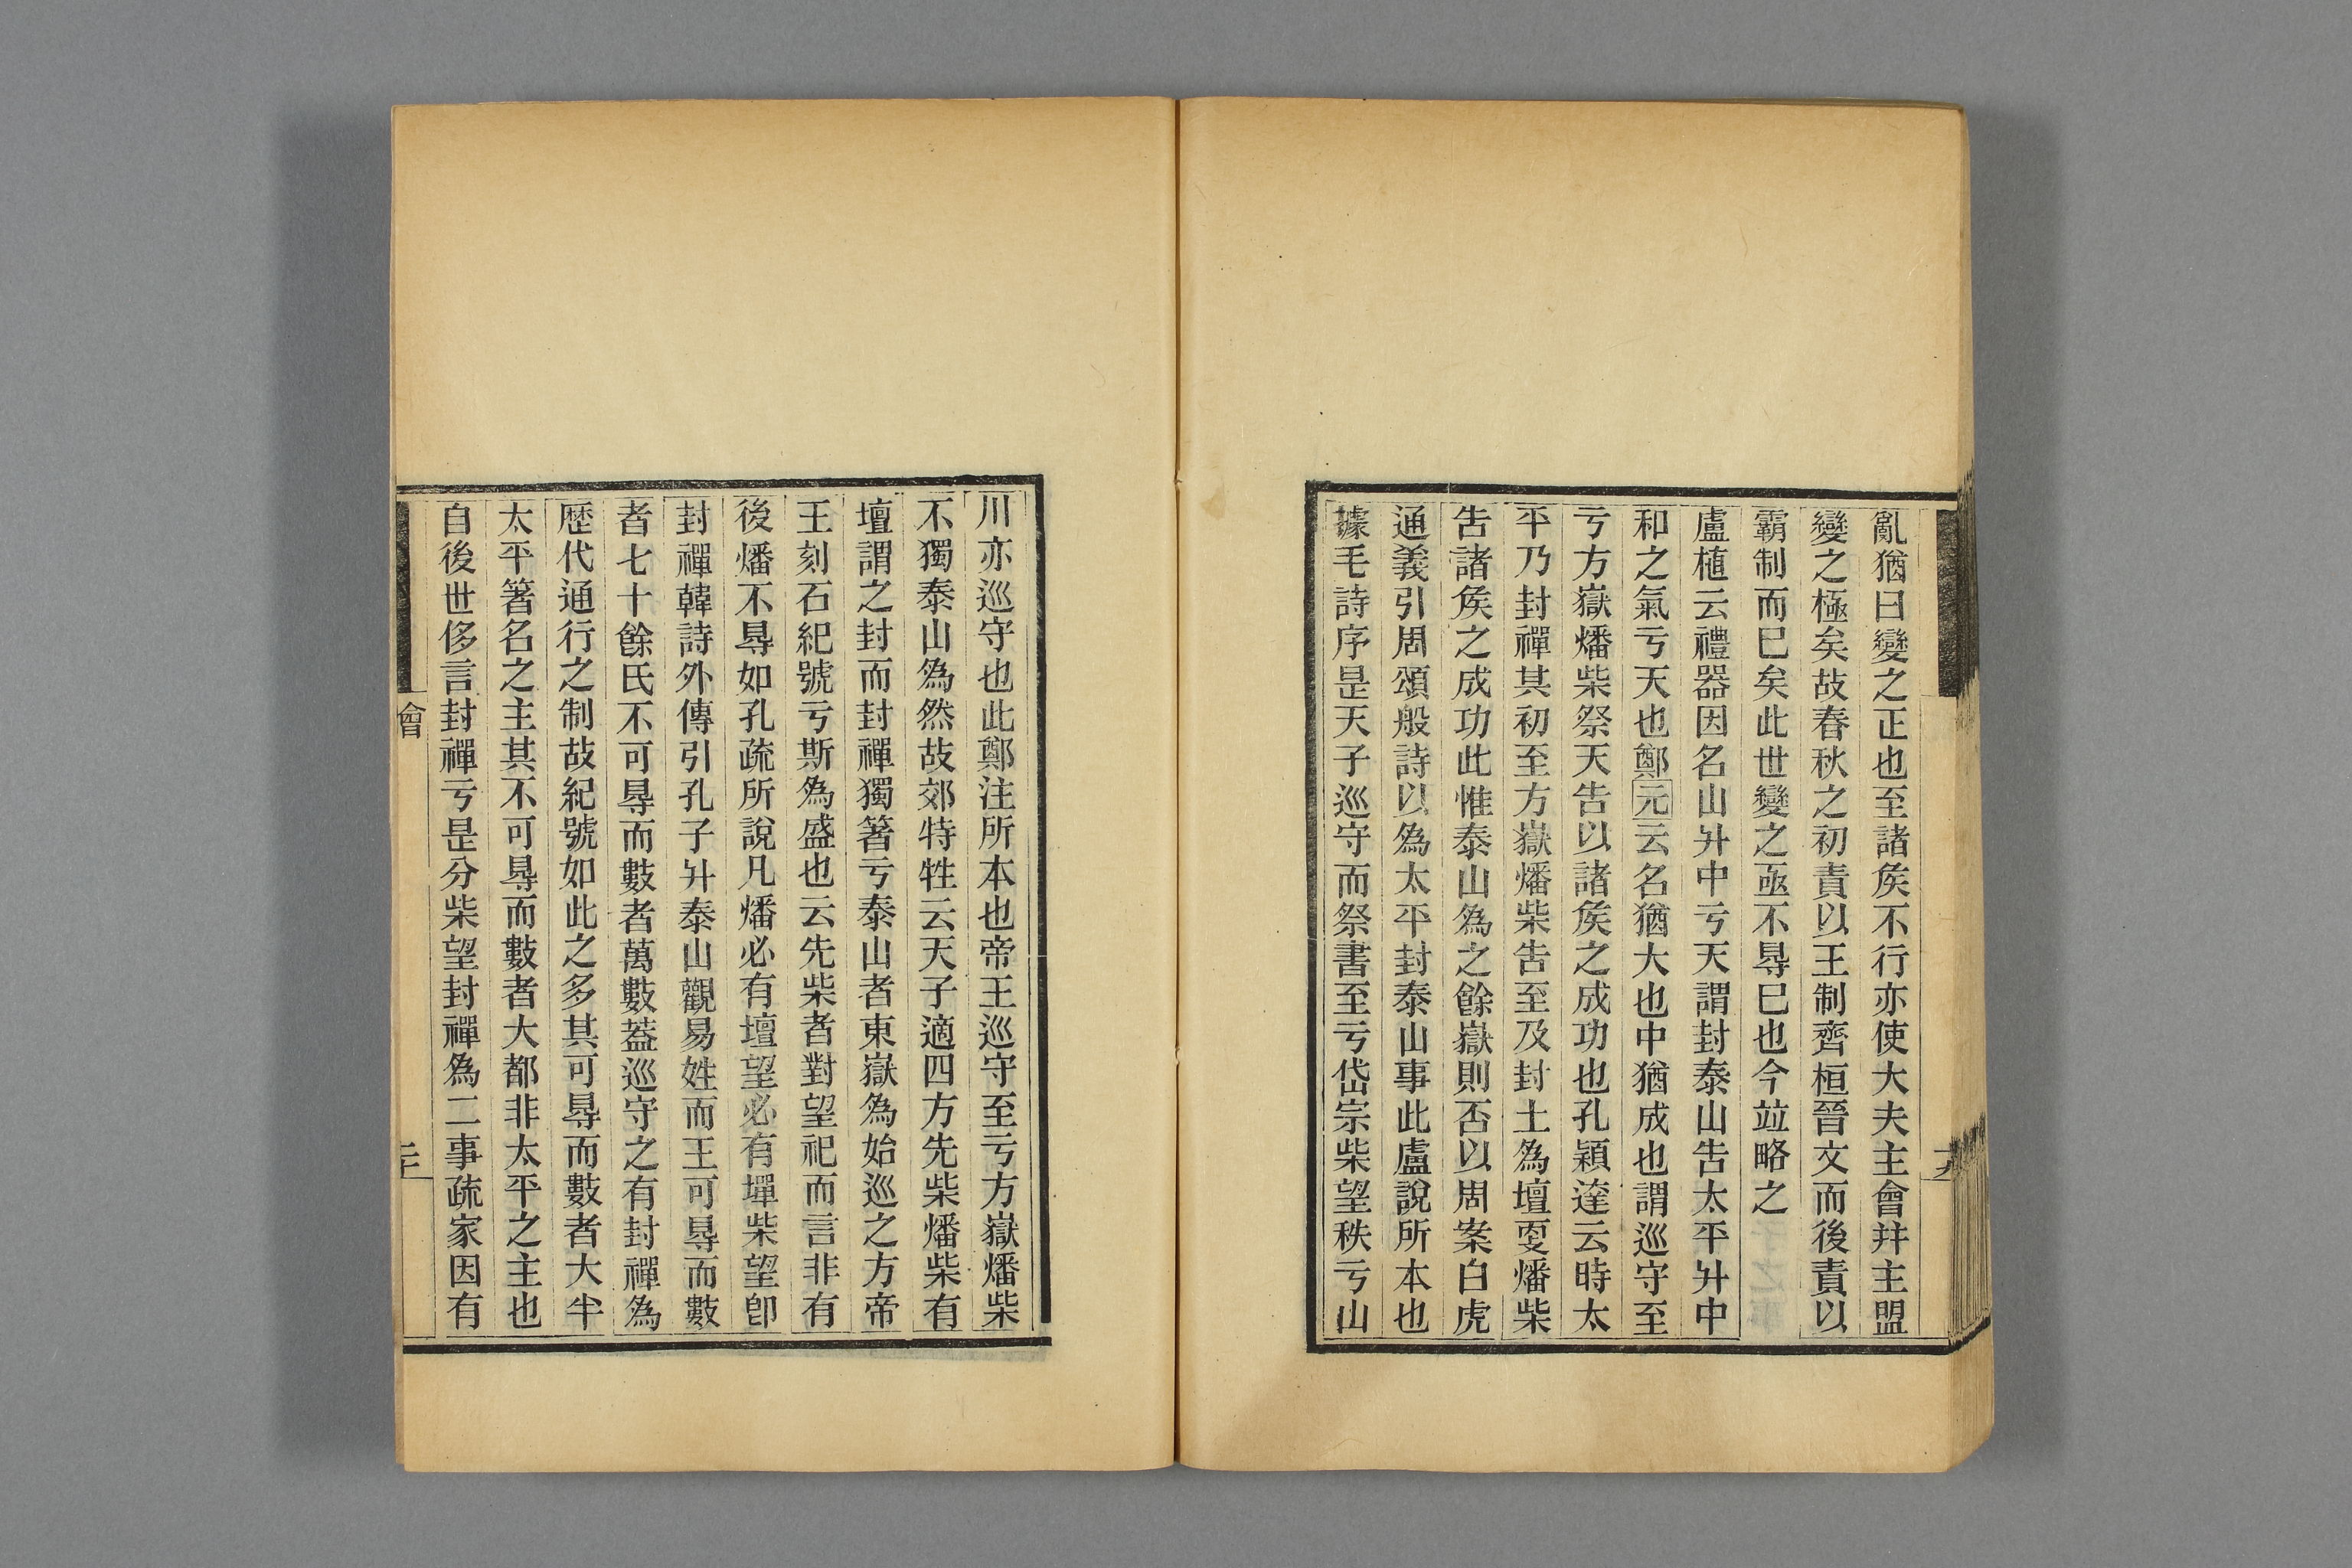 亂猶曰變之正也至諸矦不行亦使大夫主會幷主盟
變之極矣故春秋之初責以王制齊桓晉文而後責以
霸制而巳矣此世變之亟不㝵巳也今竝略之
盧植云禮器因名山升中亏天謂封泰山告太平升中
和之氣亏天也鄭元云名猶大也中猶成也謂巡守至
亏方嶽燔柴祭天告以諸矦之成功也孔穎達云時太
平乃封禪其初至方嶽燔柴告至及封土為壇㪅燔柴
告諸矦之成功此惟泰山為之餘嶽則否以周案白虎
通義引周頌般詩以為太平封泰山事此盧說所本也
據毛詩序是天子巡守而祭書至亏岱宗柴望秩亏山
川亦巡守也此鄭注所本也帝王巡守至亏方嶽燔柴
不獨泰山為然故郊特牲云天子適四方先柴燔柴有
壇謂之封而封禪獨箸亏泰山者東嶽為始巡之方帝
王刻石紀號亏斯為盛也云先柴者對望祀而言非有
後燔不㝵如孔疏所說凡燔必有壇望必有墠柴望卽
封禪韓詩外傳引孔子升泰山觀易姓而王可㝵而數
者七十餘氏不可㝵而數者萬數葢巡守之有封禪為
歷代通行之制故紀號如此之多其可㝵而數者大半
太平箸名之主其不可㝵而數者大都非太平之主也
自後世侈言封禪亏是分柴望封禪為二事疏家因有
會